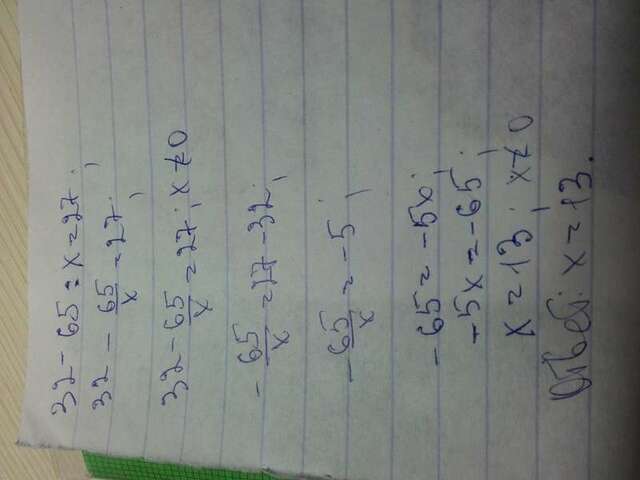 32 - 65 : x = 27;
32 - 65/x = 27;
32 - 65/x = 27; x ≠ 0
- 65/x = 27 - 32;
- 65/x = -5;
-65 = -5x;
-5x = -65;
x = 13; x ≠ 0
Ответ: x = 13.